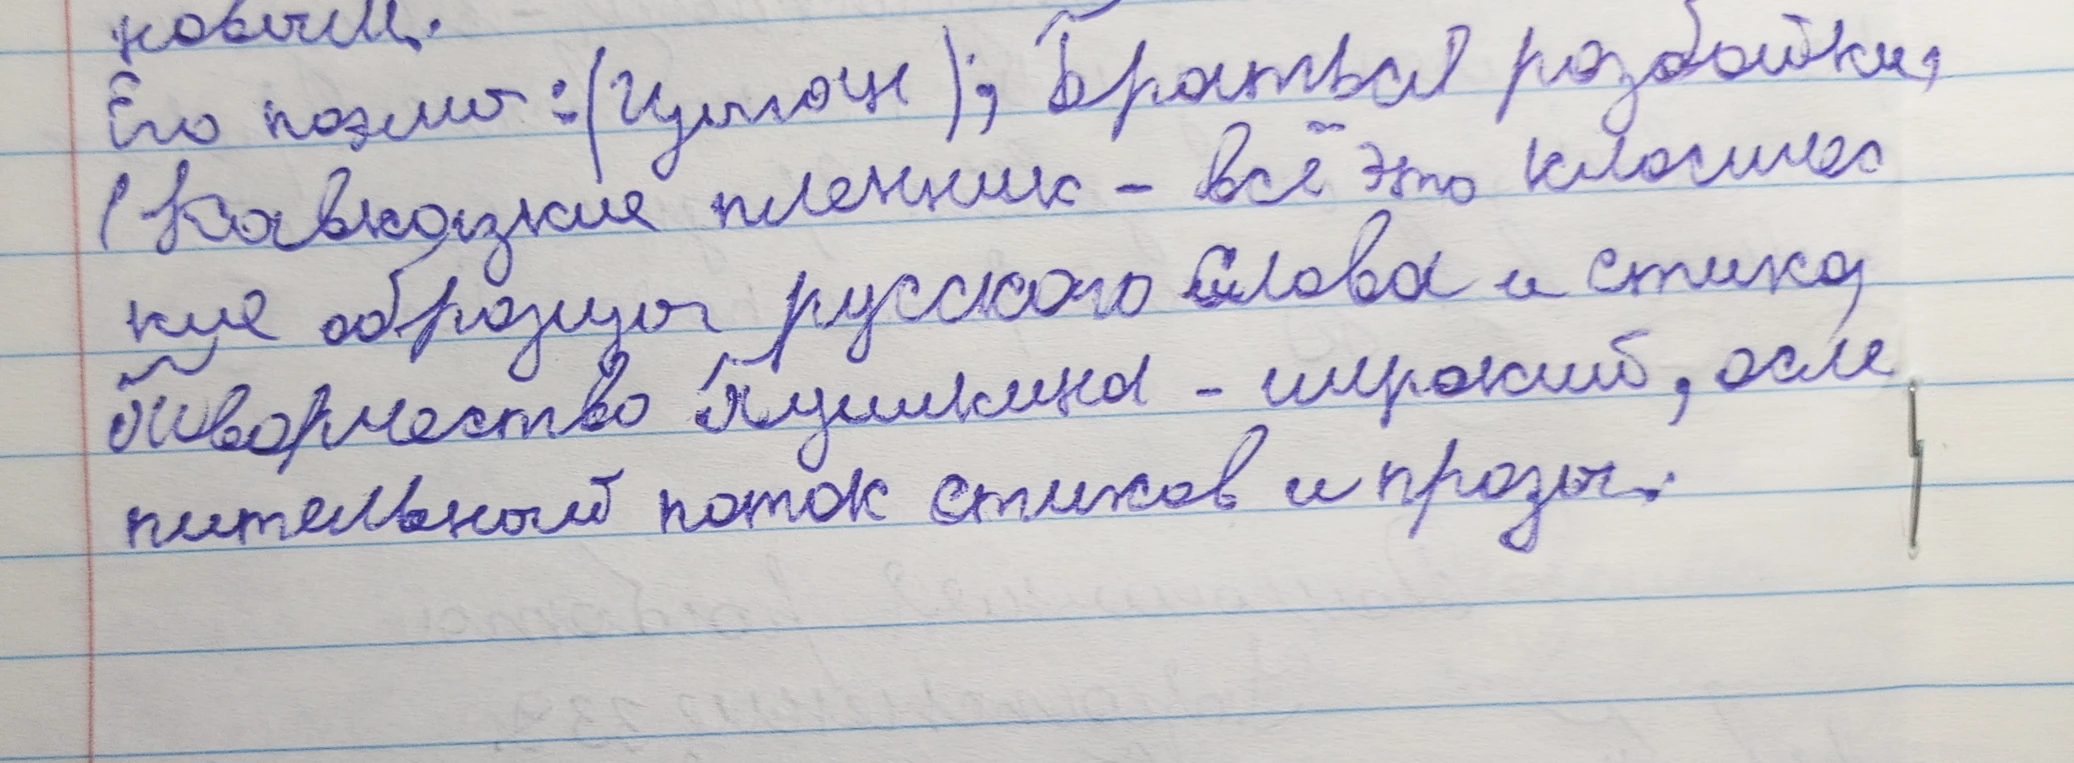 новым.
Его поэмы: (Цыгане); Братья розбойки,
(Кавкозкие пленник - всё это класичес
кие образцы русского слова и стиха,
Творчество Пушкина - широкий, осле
пительный поток стихов и прозы.